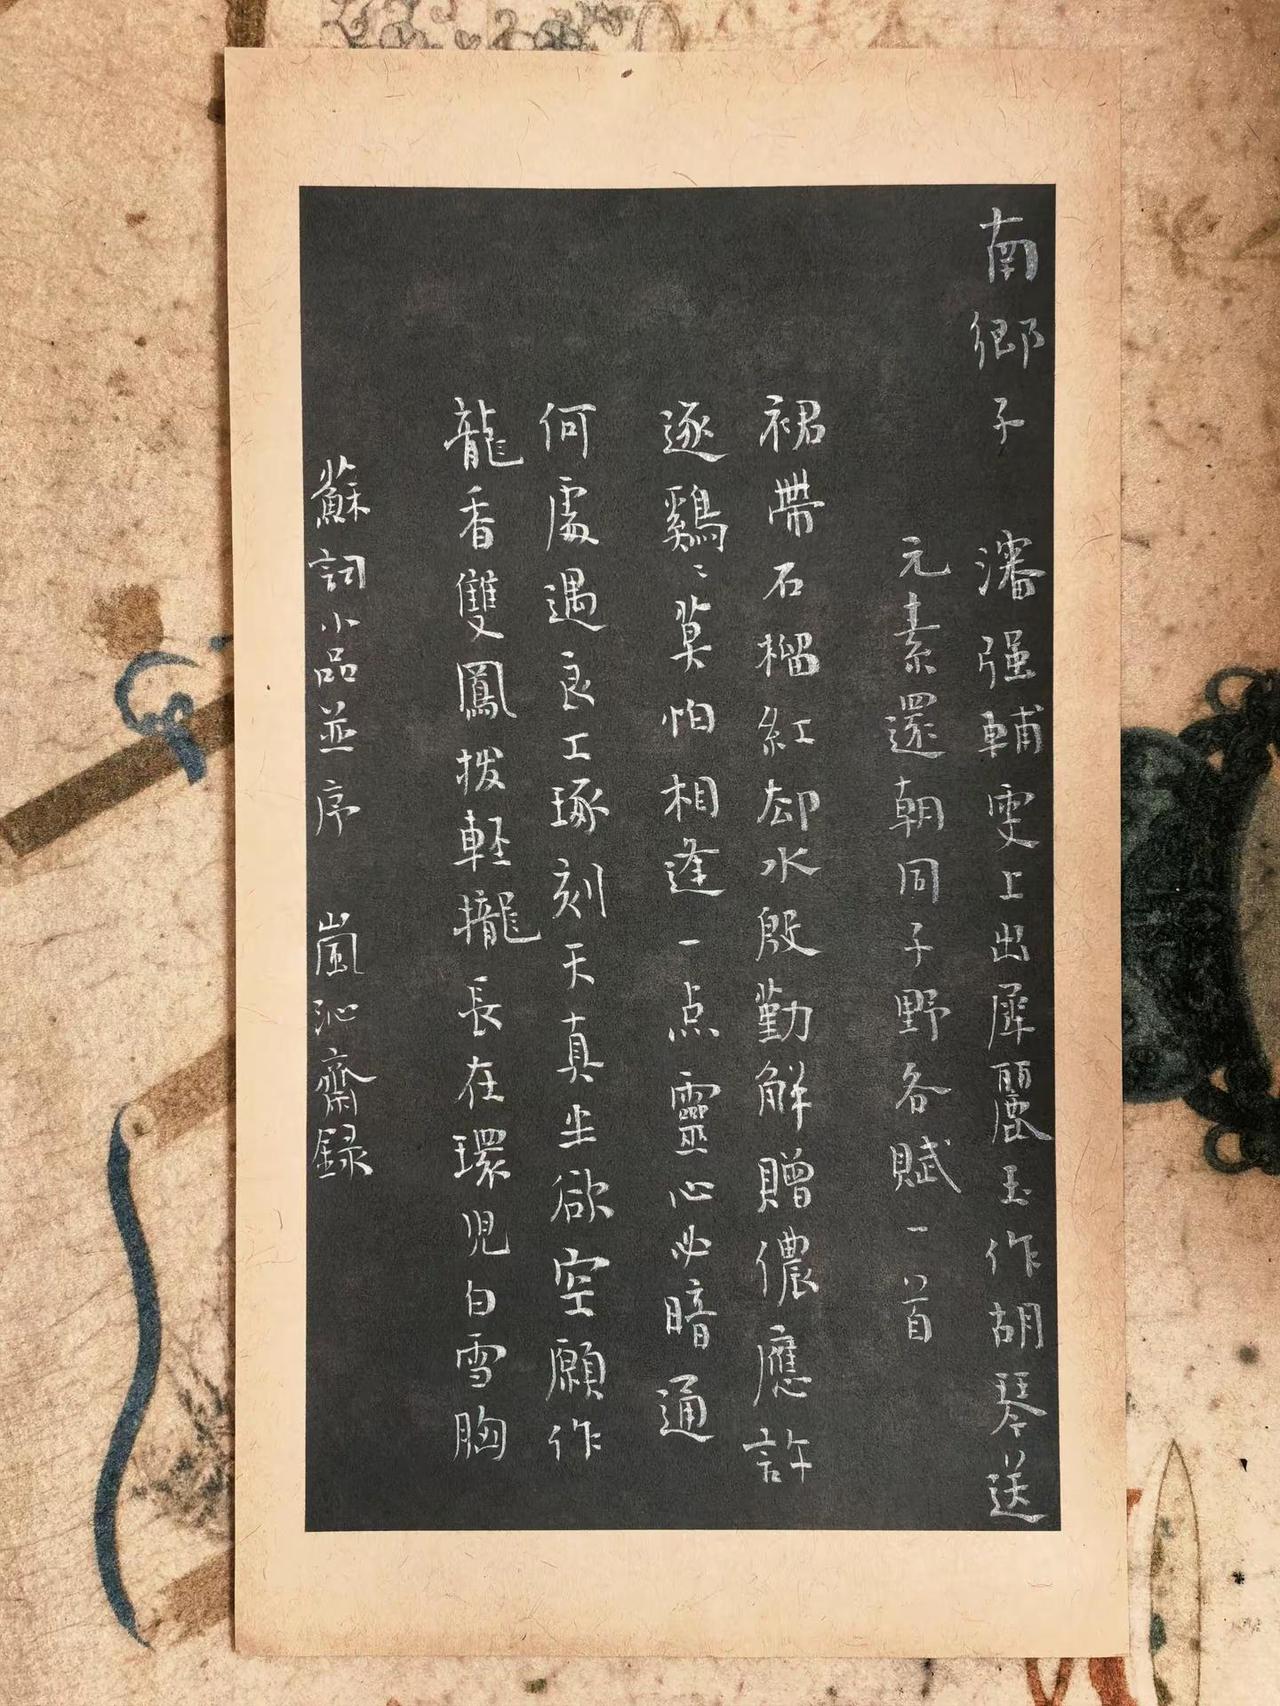 南鄉子 瀋强輔雯上出犀麗玉作胡琴送
元素還朝同子野各賦一首
裙帶石榴紅却水殷勤解贈儂應許
逐鷄〻莫怕相逢一点靈心必暗通
何處遇良工琢刻天真半欲空願作
龍香雙鳳撥輕攏長在環児白雪胸
蘇詞小品並序 嵐沁齋録